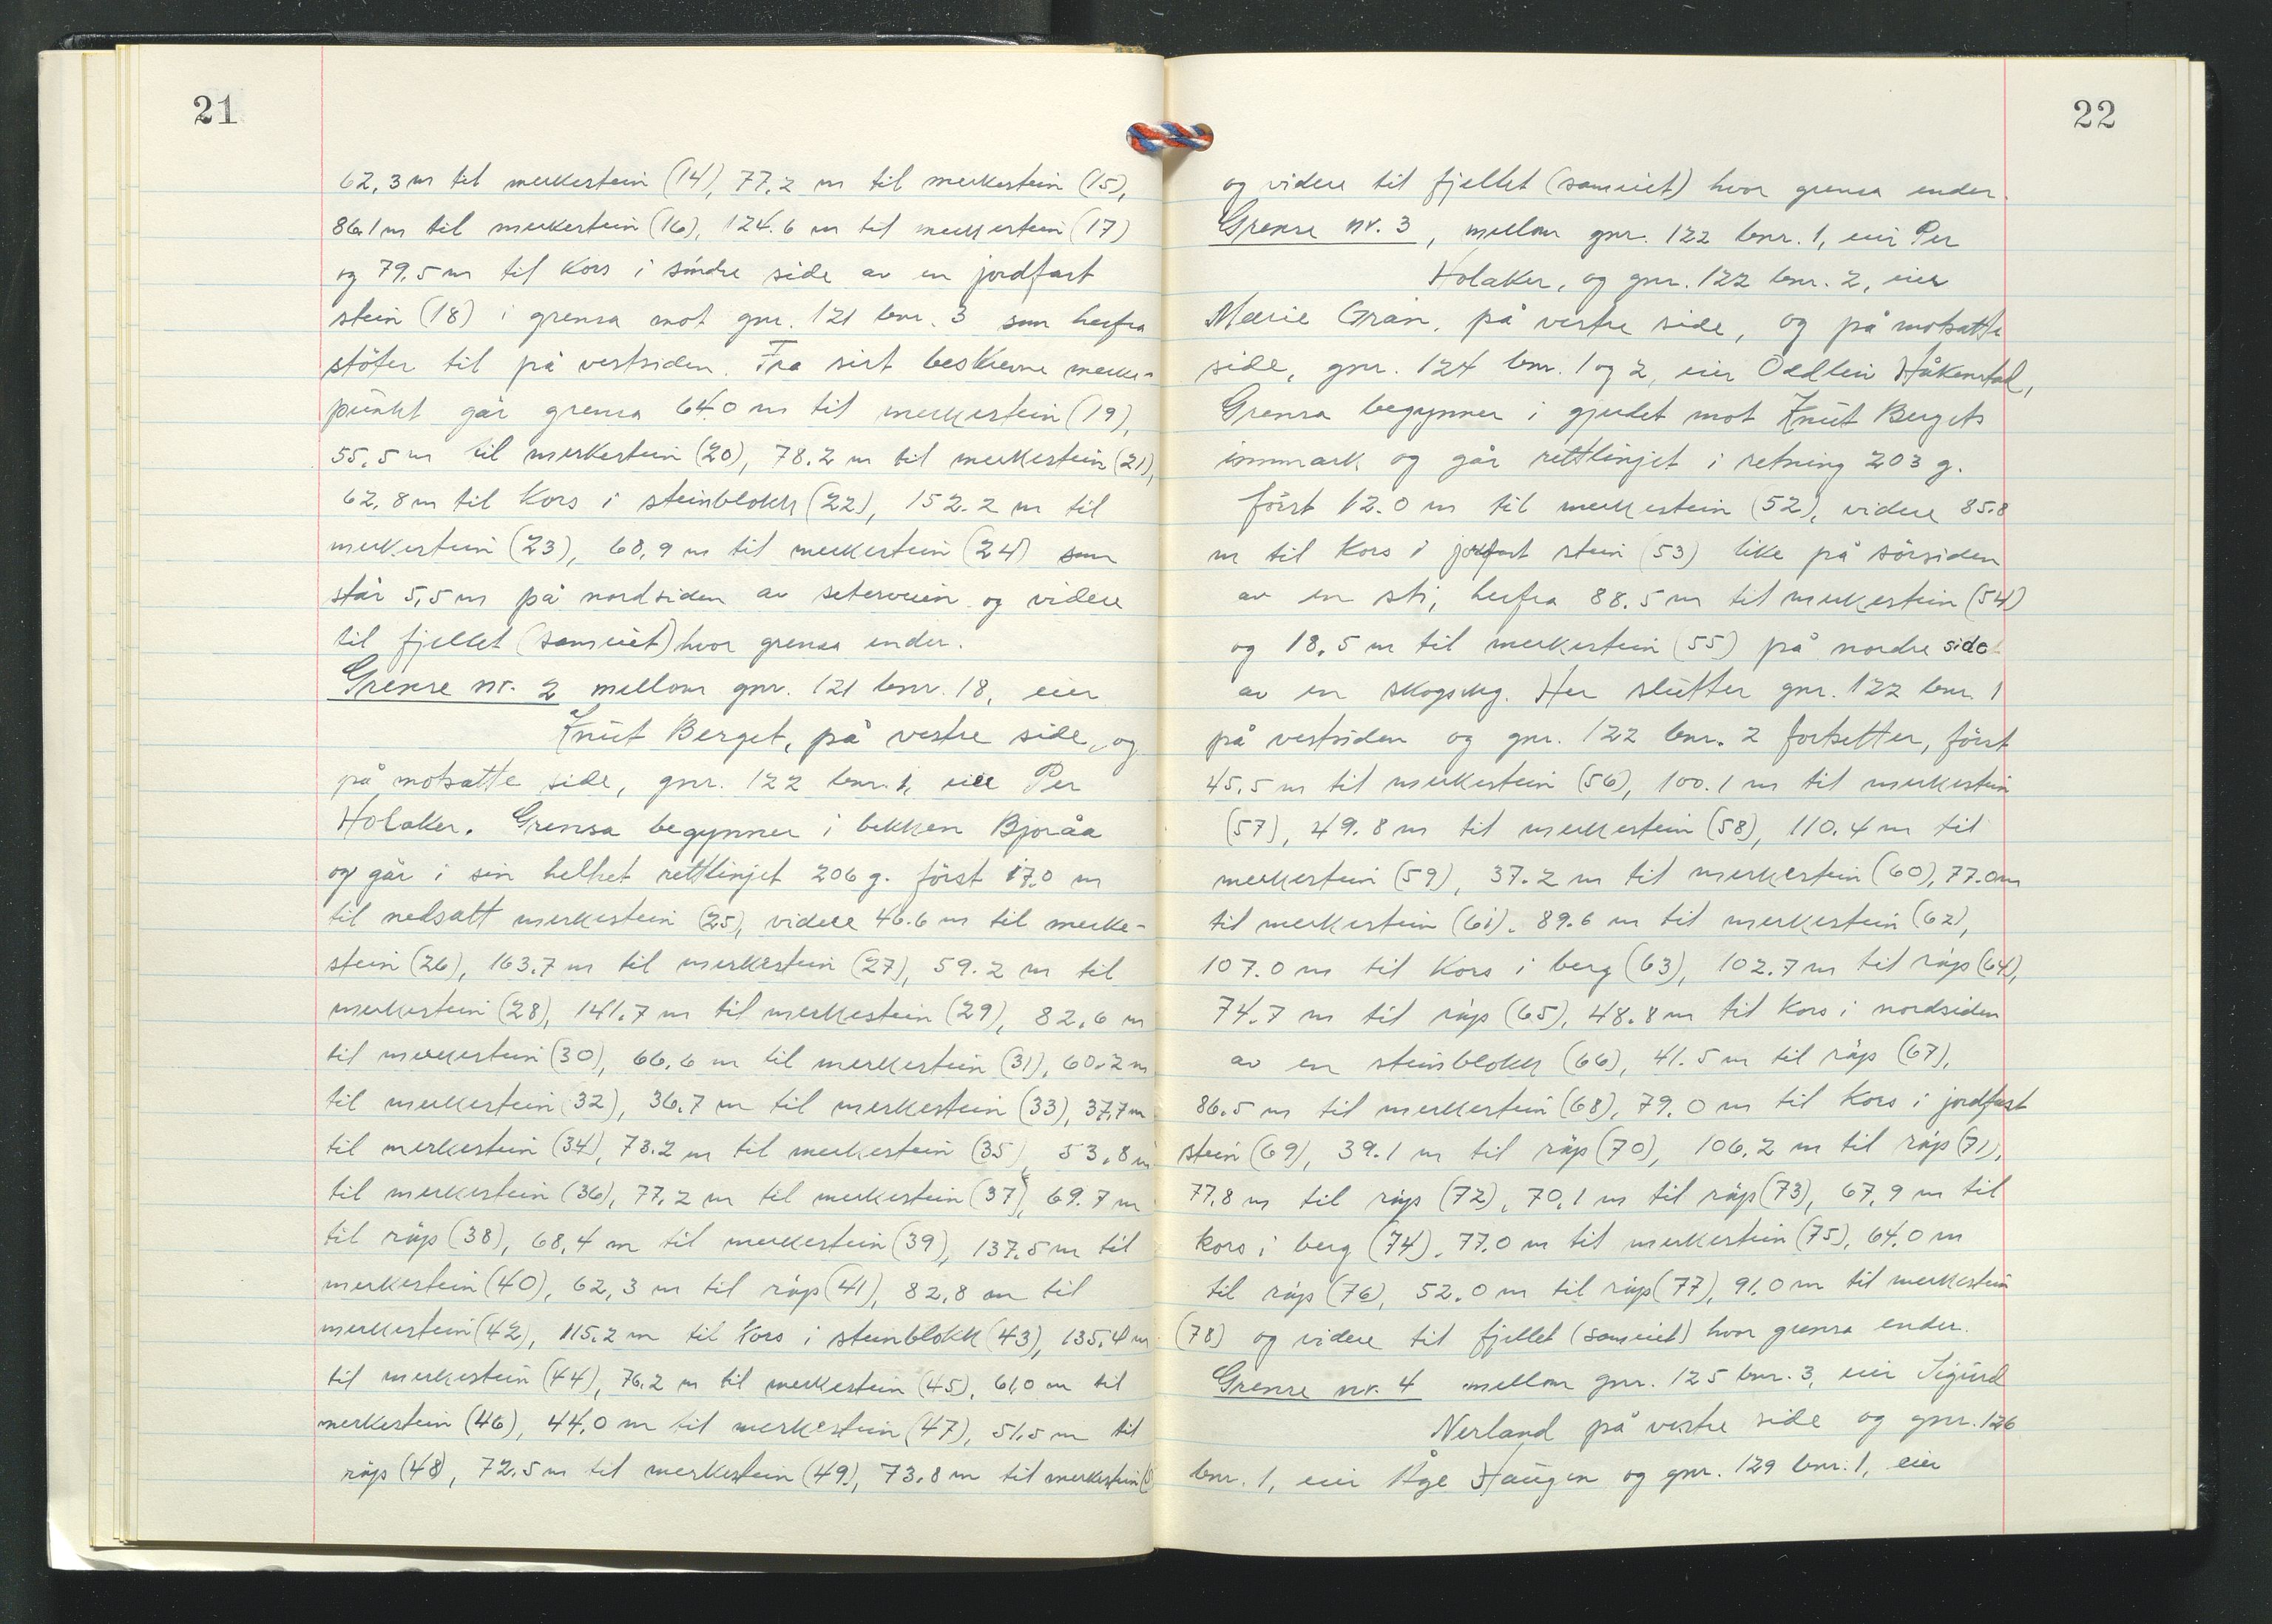 21
62,3 m til merkestein (14), 77,2 m til merkestein (15),
86.1 m til merkestein (16), 124.6 m til merkestein (17)
og 79,5 m til kors i söndre side av en jordfast
stein (18) i grensa mot gnr. 121 bnr. 3 som herfra
stöter til på vestsiden. Fra sist beskrevne merke-
punkt går grensa 64.0 m til merkestein (19),
55,5 m til merkestein (20), 78.2 m til merkestein (21),
62,8 m til kors i steinblokk (22), 152.2 m til
merkestein (23), 68,9 m til merkestein (24) som
står 5,5 m på nordsiden av seterveien og videre
til fjellet (sameiet) hvor grensa ender.
Grense nr. 2 mellom gnr. 121 bnr. 18, eier
Knut Berget, på vestre side, og
på motsatte side, gnr. 122 bnr. 1, eier Per
Holaker. Grensa begynner i bekken Bjoråa
og går i sin helhet rettlinjet 206 g. först 17.0 m
til nedsatt merkestein (25), videre 46.6 m til merke-
stein (26), 163.7 m til merkestein (27), 59.2 m til
merkestein (28), 141.7 m til merkestein (29), 82,6 m
til merkestein (30), 66,6 m til merkestein (31), 60.2 m
til merkestein (32), 36.7 m til merkestein (33), 37,7 m
til merkestein (34), 73.2 m til merkestein (35), 53,8 m
til merkestein (36), 77,2 m til merkestein (37), 69.7 m
til röys (38), 68,4 m til merkestein (39), 137.5 m til
merkestein (40), 62,3 m til röys (41), 82,8 m til
merkestein (42), 115.2 m til kors i steinblokk (43), 135,4 m
til merkestein (44), 76.2 m til merkestein (45), 61.0 m til
merkestein (46), 44,0 m til merkestein (47), 51,5 m til
röys (48), 72.5 m til merkestein (49), 73,8 m til merkestein
22
og videre til fjellet (sameiet) hvor grensa ender.
Grense nr. 3, mellom gnr. 122 bnr. 1, eier Per
Holaker, og gnr. 122 bnr. 2, eier
Marie Gran, på vestre side, og på motsatte
side, gnr. 124 bnr. 1 og 2, eier Oddlein Håkenstad,
Grensa begynner i gjerdet mot Knut Bergets
innmark og går rettlinjet i retning 203 g.
först 12.0 m til merkestein (52), videre 85.8
m til kors i jordfast stein (53) like på sörsiden
av en sti, herfra 88.5 m til merkestein (54)
og 18,5 m til merkestein (55) på nordre side
av en skogsveg. Her slutter gnr. 122 bnr. 1
på vestsiden og gnr. 122 bnr. 2 fortsetter, först
45,5 m til merkestein (56), 100.1 m til merkestein
(57), 49.8 m til merkestein (58), 110.4 m til
merkestein (59), 37.2 m til merkestein (60), 77.0 m
til merkestein (61), 89.6 m til merkestein (62),
107.0 m til kors i berg (63), 102.7 m til röys (64),
74.7 m til röys (65), 48.8 m til kors i nordsiden
av en steinsblokk (66), 41.5 m til röys (67),
86.5 m til merkestein (68), 79.0 m til kors i jordfast
stein (69), 39.1 m til röys (70), 106.2 m til röys (71),
77.8 m til röys (72), 70,1 m til röys (73), 67,9 m til
kors i berg (74), 77.0 m til merkestein (75), 64.0 m
til röys (76), 52.0 m til röys (77), 91.0 m til merkestein
(78) og videre til fjellet (sameiet) hvor grensa ender.
Grense nr. 4 mellom gnr. 125 bnr. 3, eier Sigurd
Nerland på vestre side og gnr. 126
bnr. 1, eier Åge Haugen og gnr. 129 bnr. 1, eier